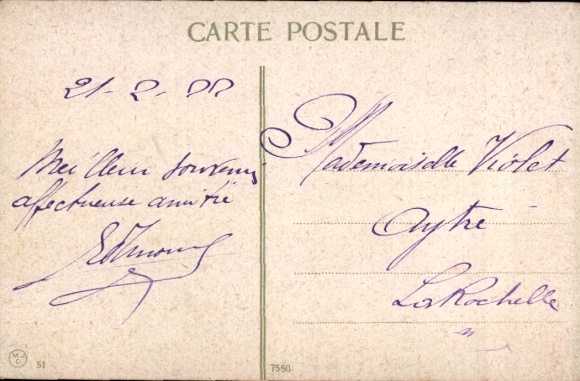 CARTE POSTALE
21-2-22
Meilleur souvenir
affectueuse amitié
Mademoiselle Violet
Aytré
La Rochelle
51
7550